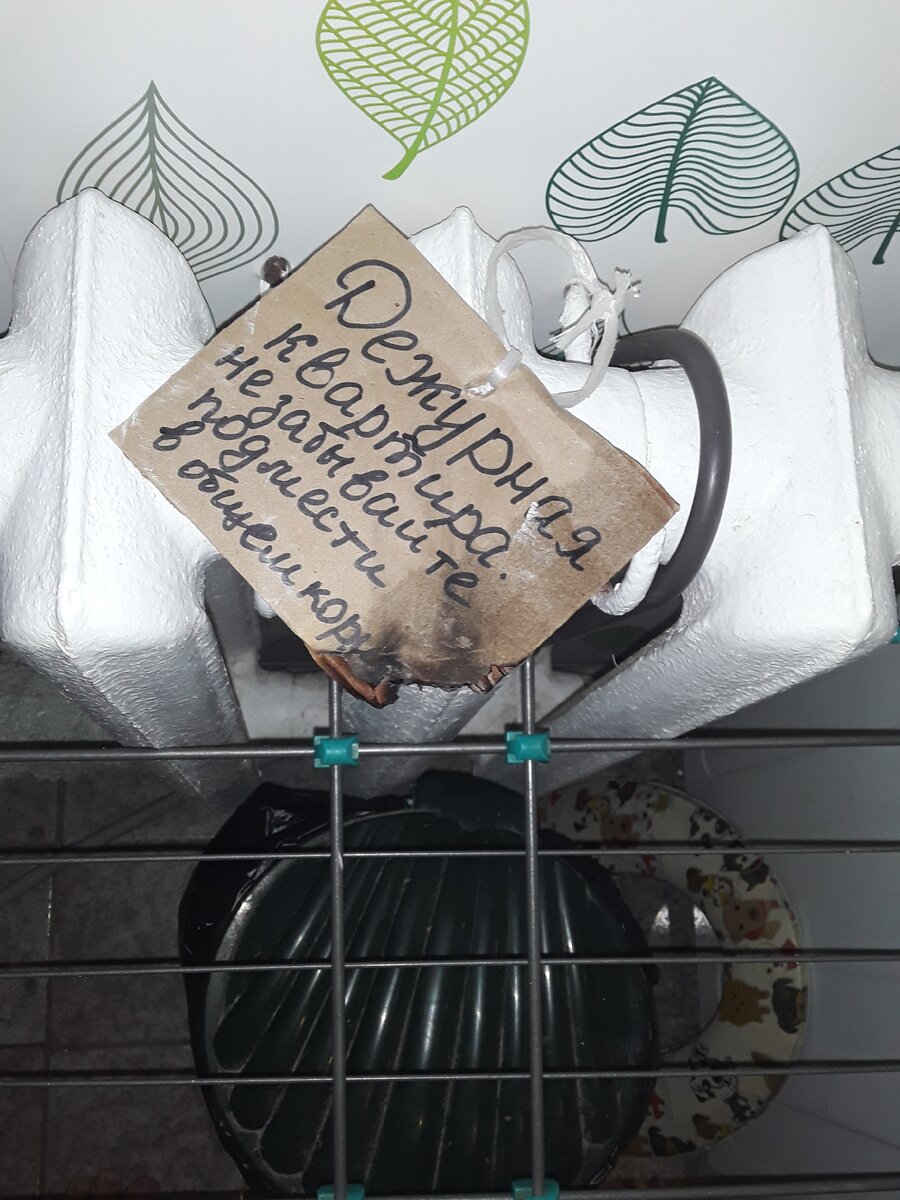 Дежурная
квартира.
не забывайте
подмести
в общем